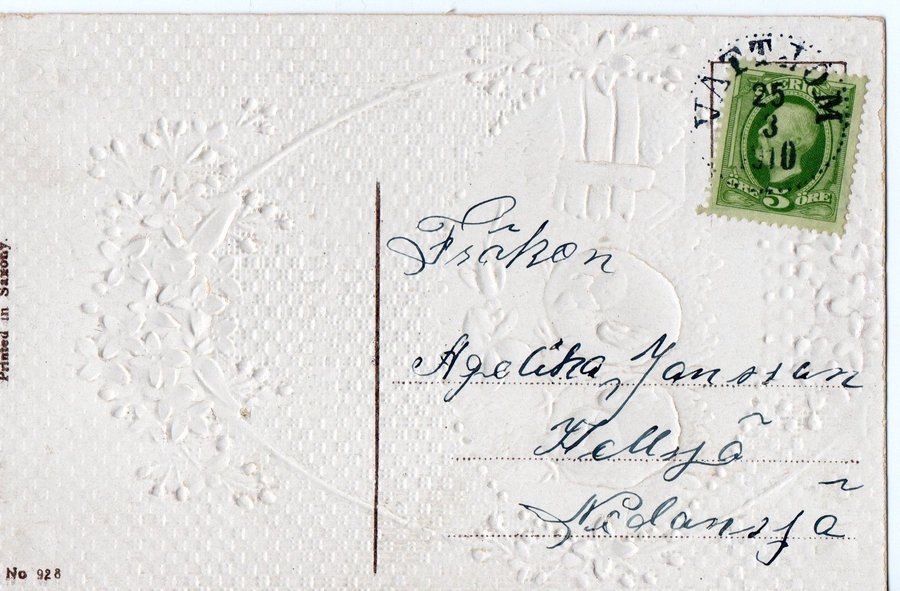 VATTJOM
25
3
10
SVERIGE
5 ÖRE
Fröken
Agelika Jansson
Hellsjö
Nedansjö
Printed in Saxony.
No 928